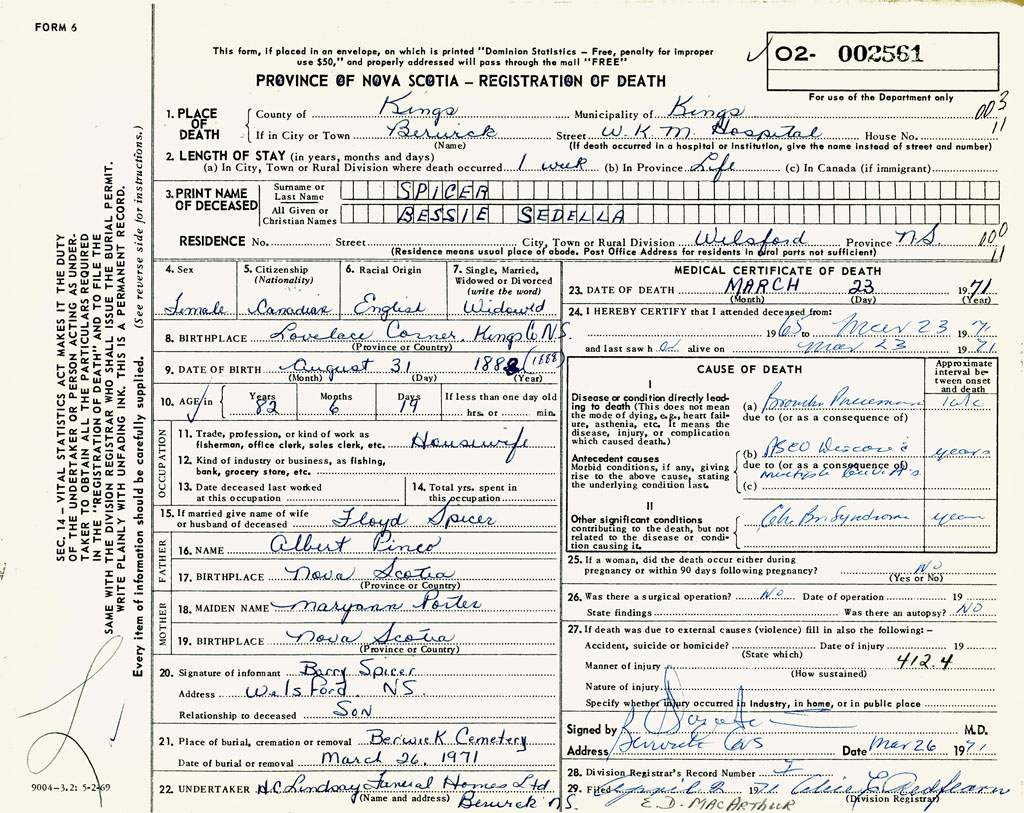 FORM 6
This form, if placed in an envelope, on which is printed "Dominion Statistics – Free, penalty for improper
use $50," and properly addressed will pass through the mail "FREE"
02- 002561
PROVINCE OF NOVA SCOTIA – REGISTRATION OF DEATH
For use of the Department only
003
11
1. PLACE OF DEATH
County of Kings Municipality of Kings
If in City or Town Berwick Street W.K.M. Hospital House No.
(Name) (If death occurred in a hospital or institution, give the name instead of street and number)
2. LENGTH OF STAY (in years, months and days)
(a) In City, Town or Rural Division where death occurred 1 week (b) In Province Life (c) In Canada (if immigrant)
3. PRINT NAME OF DECEASED
Surname or Last Name SPICER
All Given or Christian Names BESSIE SEDELLA
RESIDENCE No. Street City, Town or Rural Division Wilsford Province NS
000
11
(Residence means usual place of abode. Post Office Address for residents in rural parts not sufficient)
4. Sex Female
5. Citizenship (Nationality) Canadian
6. Racial Origin English
7. Single, Married, Widowed or Divorced (write the word) Widowed
8. BIRTHPLACE Lovelace Corner, Kings Co N.S.
(Province or Country)
9. DATE OF BIRTH August 31 1888 (1888)
(Month) (Day) (Year)
10. AGE in Years 82 Months 6 Days 19 If less than one day old hrs. or min.
OCCUPATION
11. Trade, profession, or kind of work as fisherman, office clerk, sales clerk, etc. Housewife
12. Kind of industry or business, as fishing, bank, grocery store, etc.
13. Date deceased last worked at this occupation
14. Total yrs. spent in this occupation
15. If married give name of wife or husband of deceased Floyd Spicer
FATHER
16. NAME Albert Pineo
17. BIRTHPLACE Nova Scotia
(Province or Country)
MOTHER
18. MAIDEN NAME Maryann Porter
19. BIRTHPLACE Nova Scotia
(Province or Country)
20. Signature of informant Barry Spicer
Address Welsford. NS.
Relationship to deceased SON
21. Place of burial, cremation or removal Berwick Cemetery
Date of burial or removal March 26, 1971
22. UNDERTAKER H.C. Lindsay Funeral Homes Ltd
(Name and address) Berwick N.S.
MEDICAL CERTIFICATE OF DEATH
23. DATE OF DEATH MARCH 23 1971
(Month) (Day) (Year)
24. I HEREBY CERTIFY that I attended deceased from:
1965 to Mar 23 1971
and last saw h alive on Mar 23 1971
CAUSE OF DEATH
Approximate interval between onset and death
I
Disease or condition directly leading to death (This does not mean the mode of dying, e.g., heart failure, asthenia, etc. It means the disease, injury, or complication which caused death.)
(a) Broncho Pneumonia
due to (or as a consequence of)
Antecedent causes
Morbid conditions, if any, giving rise to the above cause, stating the underlying condition last.
(b) ASCV Disease years
due to (or as a consequence of)
(c)
II
Other significant conditions contributing to the death, but not related to the disease or condition causing it.
Chr Br Syndrome year
25. If a woman, did the death occur either during pregnancy or within 90 days following pregnancy? NO
(Yes or No)
26. Was there a surgical operation? NO Date of operation 19
State findings Was there an autopsy? NO
27. If death was due to external causes (violence) fill in also the following: –
Accident, suicide or homicide? Date of injury 19
(State which)
Manner of injury 412.4
(How sustained)
Nature of injury
Specify whether injury occurred in Industry, in home, or in public place
Signed by M.D.
Address Berwick NS Date Mar 26 1971
28. Division Registrar's Record Number
29. Filed April 2 1971
(Division Registrar)
E.D. MACARTHUR
SEC. 14 – VITAL STATISTICS ACT MAKES IT THE DUTY
OF THE UNDERTAKER OR PERSON ACTING AS UNDER-
TAKER TO OBTAIN ALL THE PARTICULARS REQUIRED
IN THE "REGISTRATION OF DEATH" AND TO FILE THE
SAME WITH THE DIVISION REGISTRAR WHO SHALL ISSUE THE BURIAL PERMIT.
WRITE PLAINLY WITH UNFADING INK. THIS IS A PERMANENT RECORD.
Every item of information should be carefully supplied. (See reverse side for instructions.)
9004-3.2: 5-2-69